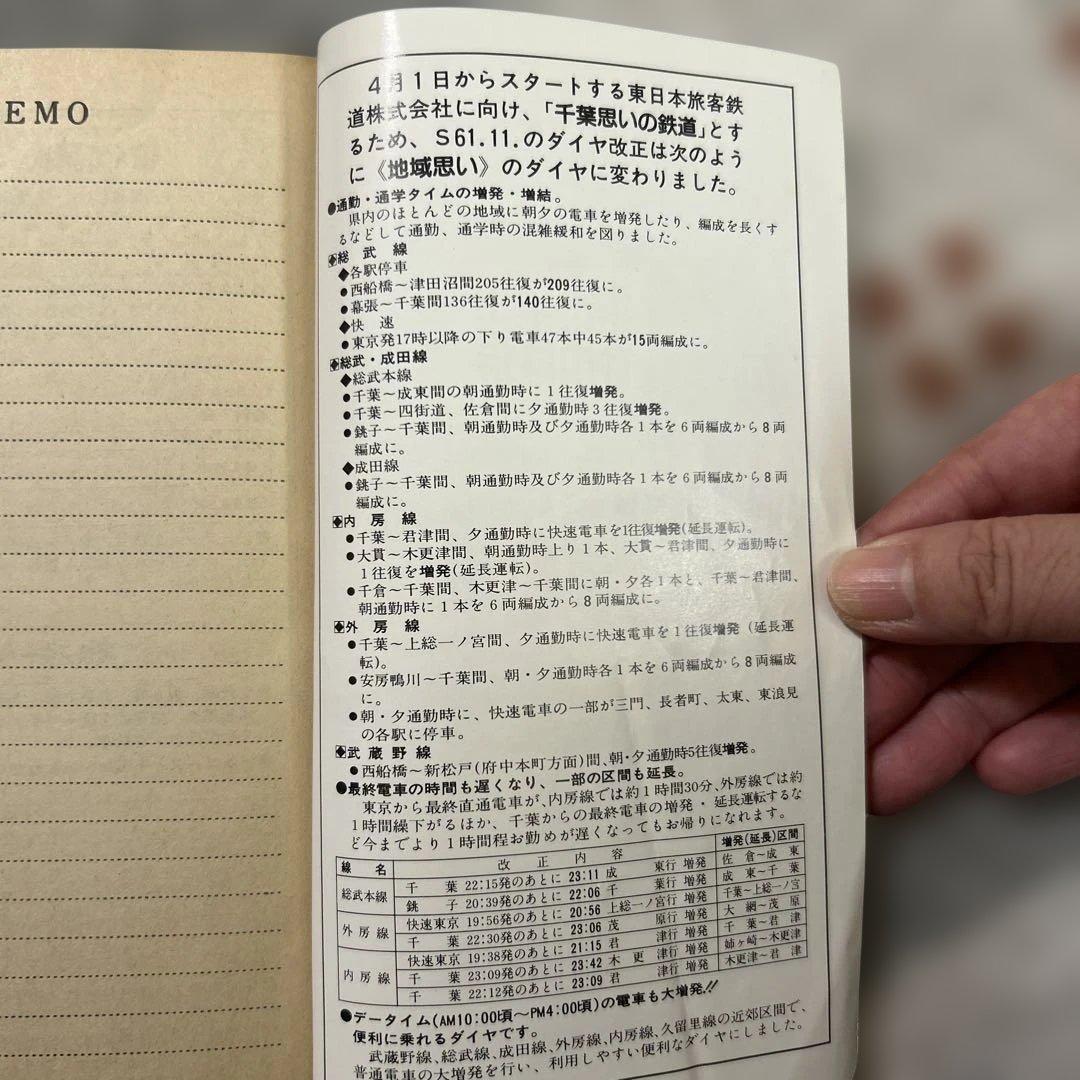 EMO
4月1日からスタートする東日本旅客鉄
道株式会社に向け、「千葉思いの鉄道」とす
るため、S61.11.のダイヤ改正は次のよう
に《地域思い》のダイヤに変わりました。
●通勤・通学タイムの増発・増結。
県内のほとんどの地域に朝夕の電車を増発したり、編成を長くす
るなどして通勤、通学時の混雑緩和を図りました。
◆総武線
◆各駅停車
●西船橋〜津田沼間205往復が209往復に。
●幕張〜千葉間136往復が140往復に。
◆快速
●東京発17時以降の下り電車47本中45本が15両編成に。
◆総武・成田線
◆総武本線
●千葉〜成東間の朝通勤時に1往復増発。
●千葉〜四街道、佐倉間に夕通勤時3往復増発。
●銚子〜千葉間、朝通勤時及び夕通勤時各1本を6両編成から8両
編成に。
◆成田線
●銚子〜千葉間、朝通勤時及び夕通勤時各1本を6両編成から8両
編成に。
◆内房線
●千葉〜君津間、夕通勤時に快速電車を1往復増発(延長運転)。
●大貫〜木更津間、朝通勤時上り1本、大貫〜君津間、夕通勤時に
1往復を増発(延長運転)。
●千倉〜千葉間、木更津〜千葉間に朝・夕各1本と、千葉〜君津間、
朝通勤時に1本を6両編成から8両編成に。
◆外房線
●千葉〜上総一ノ宮間、夕通勤時に快速電車を1往復増発(延長運
転)。
●安房鴨川〜千葉間、朝・夕通勤時各1本を6両編成から8両編成
に。
●朝・夕通勤時に、快速電車の一部が三門、長者町、太東、東浪見
の各駅に停車。
◆武蔵野線
●西船橋〜新松戸(府中本町方面)間、朝・夕通勤時5往復増発。
●最終電車の時間も遅くなり、一部の区間も延長。
東京から最終直通電車が、内房線では約1時間30分、外房線では約
1時間繰下がるほか、千葉からの最終電車の増発・延長運転するな
ど今までより1時間程お勤めが遅くなってもお帰りになれます。
線名 改正内容 増発(延長)区間
総武本線 千葉 22:15発のあとに 23:11 成東行 増発 佐倉〜成東
銚子 20:39発のあとに 22:06 千葉行 増発 成東〜千葉
外房線 快速東京 19:56発のあとに 20:56 上総一ノ宮行 増発 千葉〜上総一ノ宮
千葉 22:30発のあとに 23:06 茂原行 増発 大網〜茂原
内房線 快速東京 19:38発のあとに 21:15 君津行 増発 千葉〜君津
千葉 23:09発のあとに 23:42 木更津行 増発 姉ヶ崎〜木更津
千葉 22:12発のあとに 23:09 君津行 増発 木更津〜君津
●データイム(AM10:00頃〜PM4:00頃)の電車も大増発!!
便利に乗れるダイヤです。
武蔵野線、総武線、成田線、外房線、内房線、久留里線の近郊区間で、
普通電車の大増発を行い、利用しやすい便利なダイヤにしました。